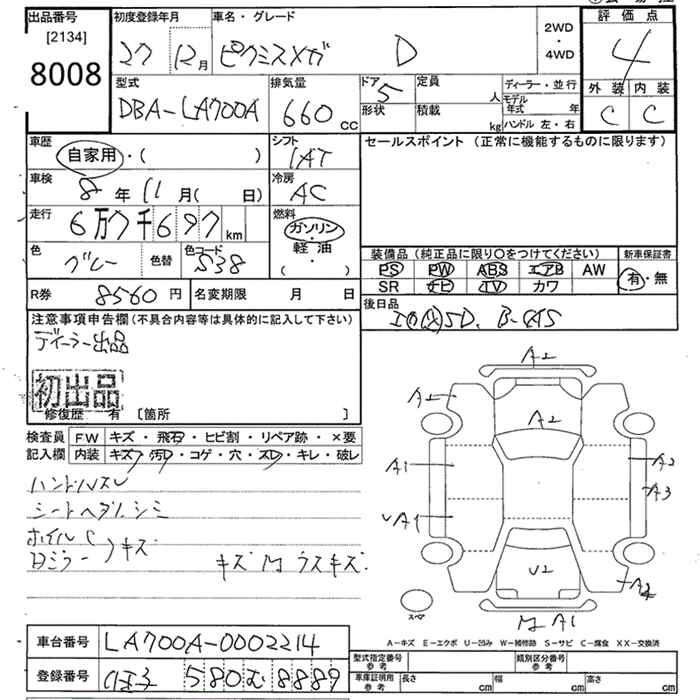 出品番号 初度登録年月 車名・グレード 評価点
[2134] 27 12月 D 2WD・4WD 4
8008 型式 排気量 ドア 定員 ディーラー・並行 外装 内装
DBA-LA700A 660cc 5 人 モデル年式 年 C C
形状 積載 kg ハンドル 左・右
車歴 シフト セールスポイント (正常に機能するものに限ります)
自家用・( ) IAT
車検 冷房
8年11月( 日) AC
走行 燃料
6万7千697km ガソリン・軽油・( )
色 色替 色コード 装備品 (純正品に限り○をつけてください) 新車保証書
グレー S38 PS PW ABS エアB AW 有・無
R券 8560円 名変期限 月 日 SR ナビ TV カワ
後日品
注意事項申告欄(不具合内容等は具体的に記入して下さい) SD、B-CAS
ディーラー出品
初出品
修復歴 有 [箇所 ]
検査員 FW キズ・飛石・ヒビ割・リペア跡・×要
記入欄 内装 キズ・汚・コゲ・穴・スレ・キレ・破レ
A2
A1
A2
A1 A2
A3
ハンドルスレ
シートヘタリ、シミ
A1
ホイルC
ドミラー キズ
キズ M ウスキズ
U2
A2
スペア
M A1
A-キズ E-エクボ U-凹み W-補修跡 S-サビ C-腐食 XX-交換済
車台番号 LA700A-0002214
型式指定番号 参考 類別区分番号 参考
登録番号 580 む 8889
車庫証明用 参考 長さ cm 幅 cm 高さ cm